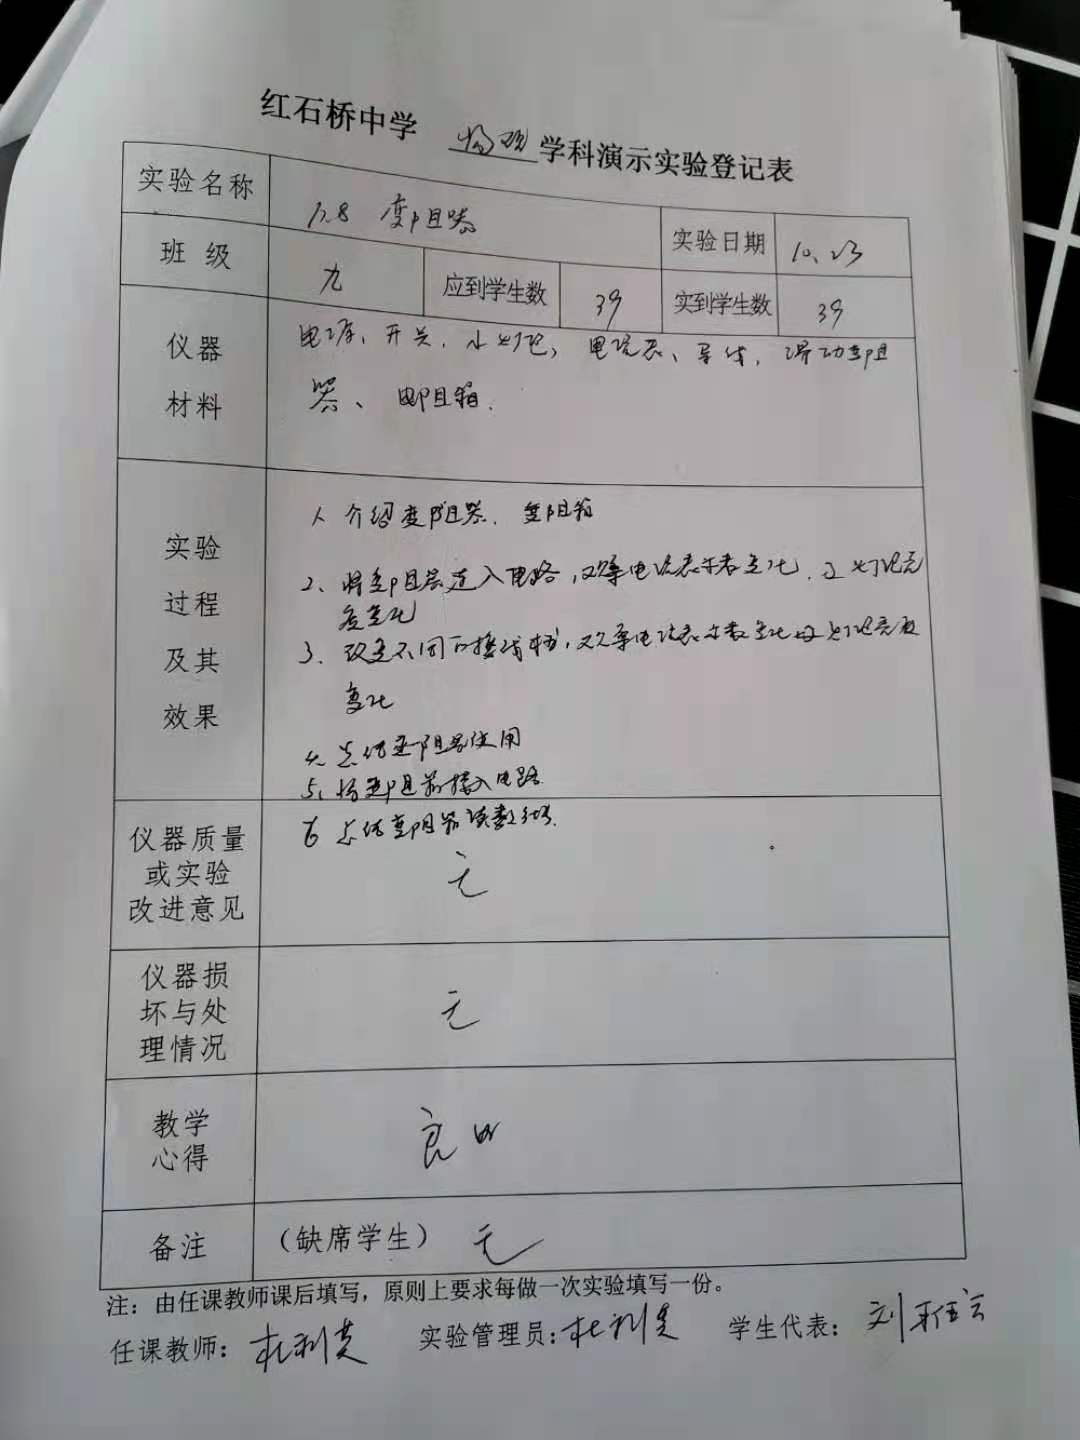 红石桥中学 物理 学科演示实验登记表
实验名称 变阻器 实验日期 10.23
班级 九 应到学生数 39 实到学生数 39
仪器 电源、开关、小灯泡、电流表、导线、滑动变阻
材料 器、电阻箱.
实验
过程
及其
效果
1、介绍变阻器、变阻箱
2、将变阻器连入电路,观察电流表示数变化,小灯泡亮
度变化
3、改变不同的接线柱,观察电流表示数变化与小灯泡亮度
变化
4、总结变阻器使用
5、将变阻箱接入电路
6 总结变阻箱读数
仪器质量
或实验
改进意见
无
仪器损
坏与处
理情况
无
教学
心得
良好
备注 (缺席学生) 无
注:由任课教师课后填写,原则上要求每做一次实验填写一份。
任课教师: 实验管理员: 学生代表: